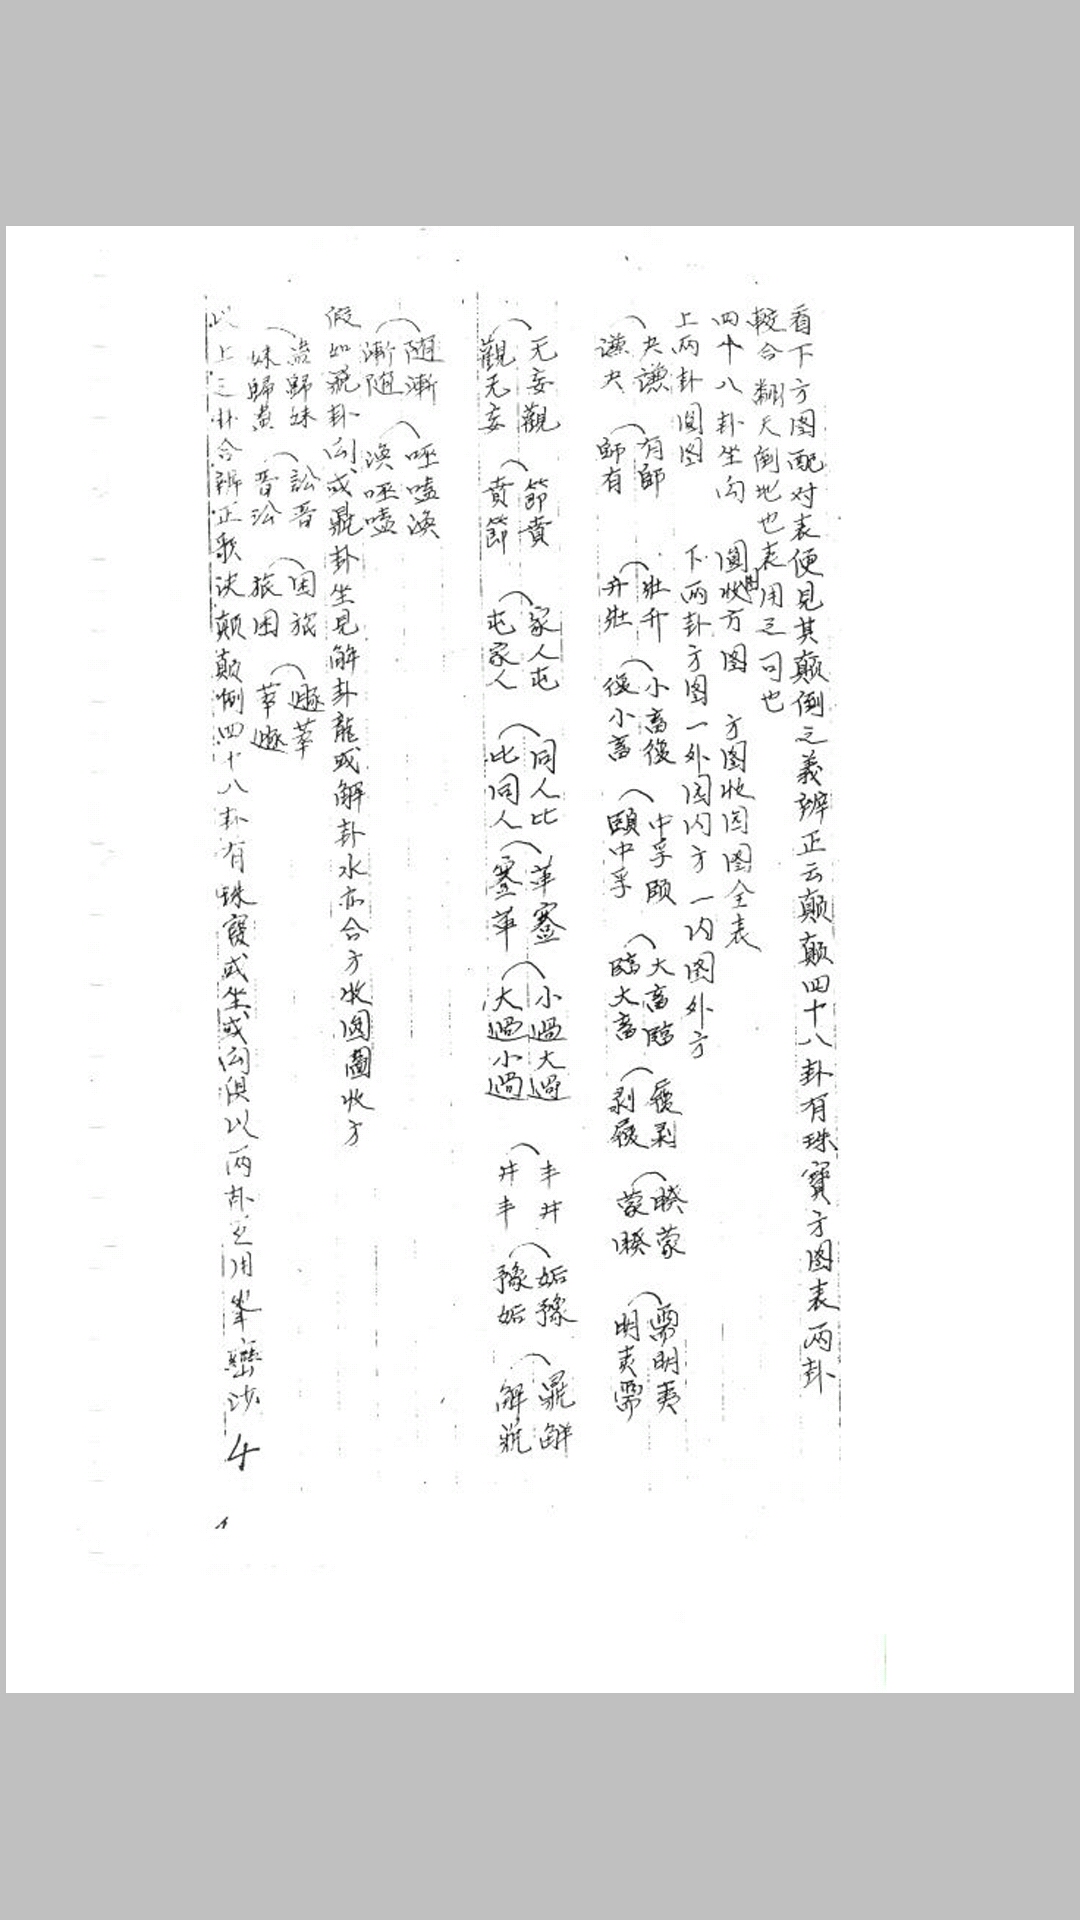 看下方图配对表便見其颠倒之義辨正云颠颠四十八卦有珠寶方图表两卦
較合翻天倒地也表用之可也
四十八卦坐向 圓收方图 方图收圆图全表
上两卦圆图 下两卦方图一外圆内方一内圆外方
夬謙 有師 壯升 小畜復 中孚頤 大畜臨 履剥 睽蒙 需明夷
謙夬 師有 升壯 復小畜 頤中孚 臨大畜 剥履 蒙睽 明夷需
无妄觀 節賁 家人屯 同人比 革蹇 小過大過 丰井 姤豫 鼎解
觀无妄 賁節 屯家人 比同人 蹇革 大過小過 井丰 豫姤 解鼎
随漸 噬嗑渙
漸随 渙噬嗑
假如鼎卦向或鼎卦坐見解卦龍或解卦水亦合方收圆圖收方
蠱歸妹 訟晋 困旅 遯萃
妹歸蠱 晋訟 旅困 萃遯
以上之卦合辨正歌决颠颠倒四十八卦有珠寳或坐或向俱以两卦互用峯巒沙
4